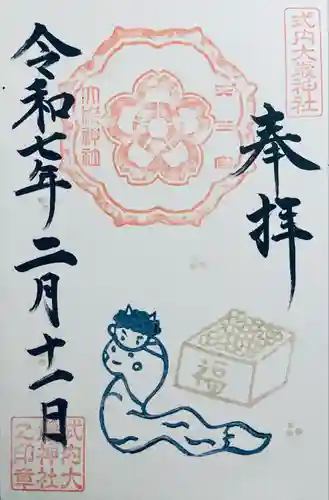 式内大嶽神社
奉拝
令和七年二月十一日
福
式内大
嶽神社
之印章